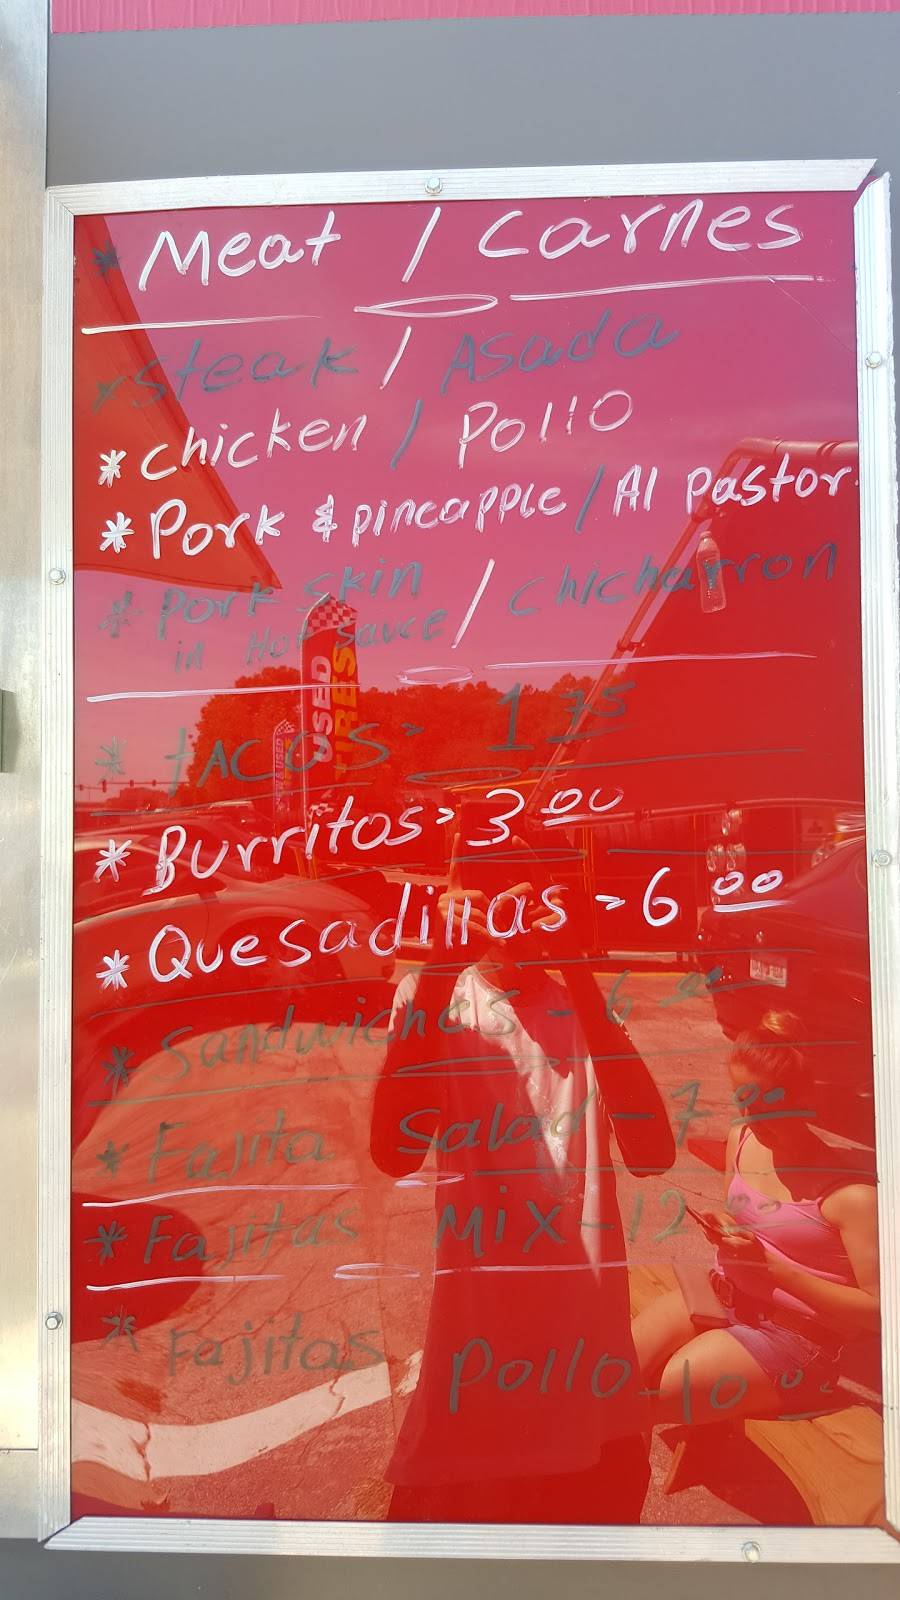 * Meat / Carnes
* Steak / Asada
* Chicken / Pollo
* Pork & pineapple / Al pastor
* Pork skin / Chicharron
in Hot sauce
* tACOS - 1 75
USED
TIRES
& USED
* Burritos - 3 00
* Quesadillas - 6 00
* Sandwiches - 6 00
* Fajita Salad - 7 00
* Fajitas Mix - 12 00
* Fajitas Pollo - 10 00